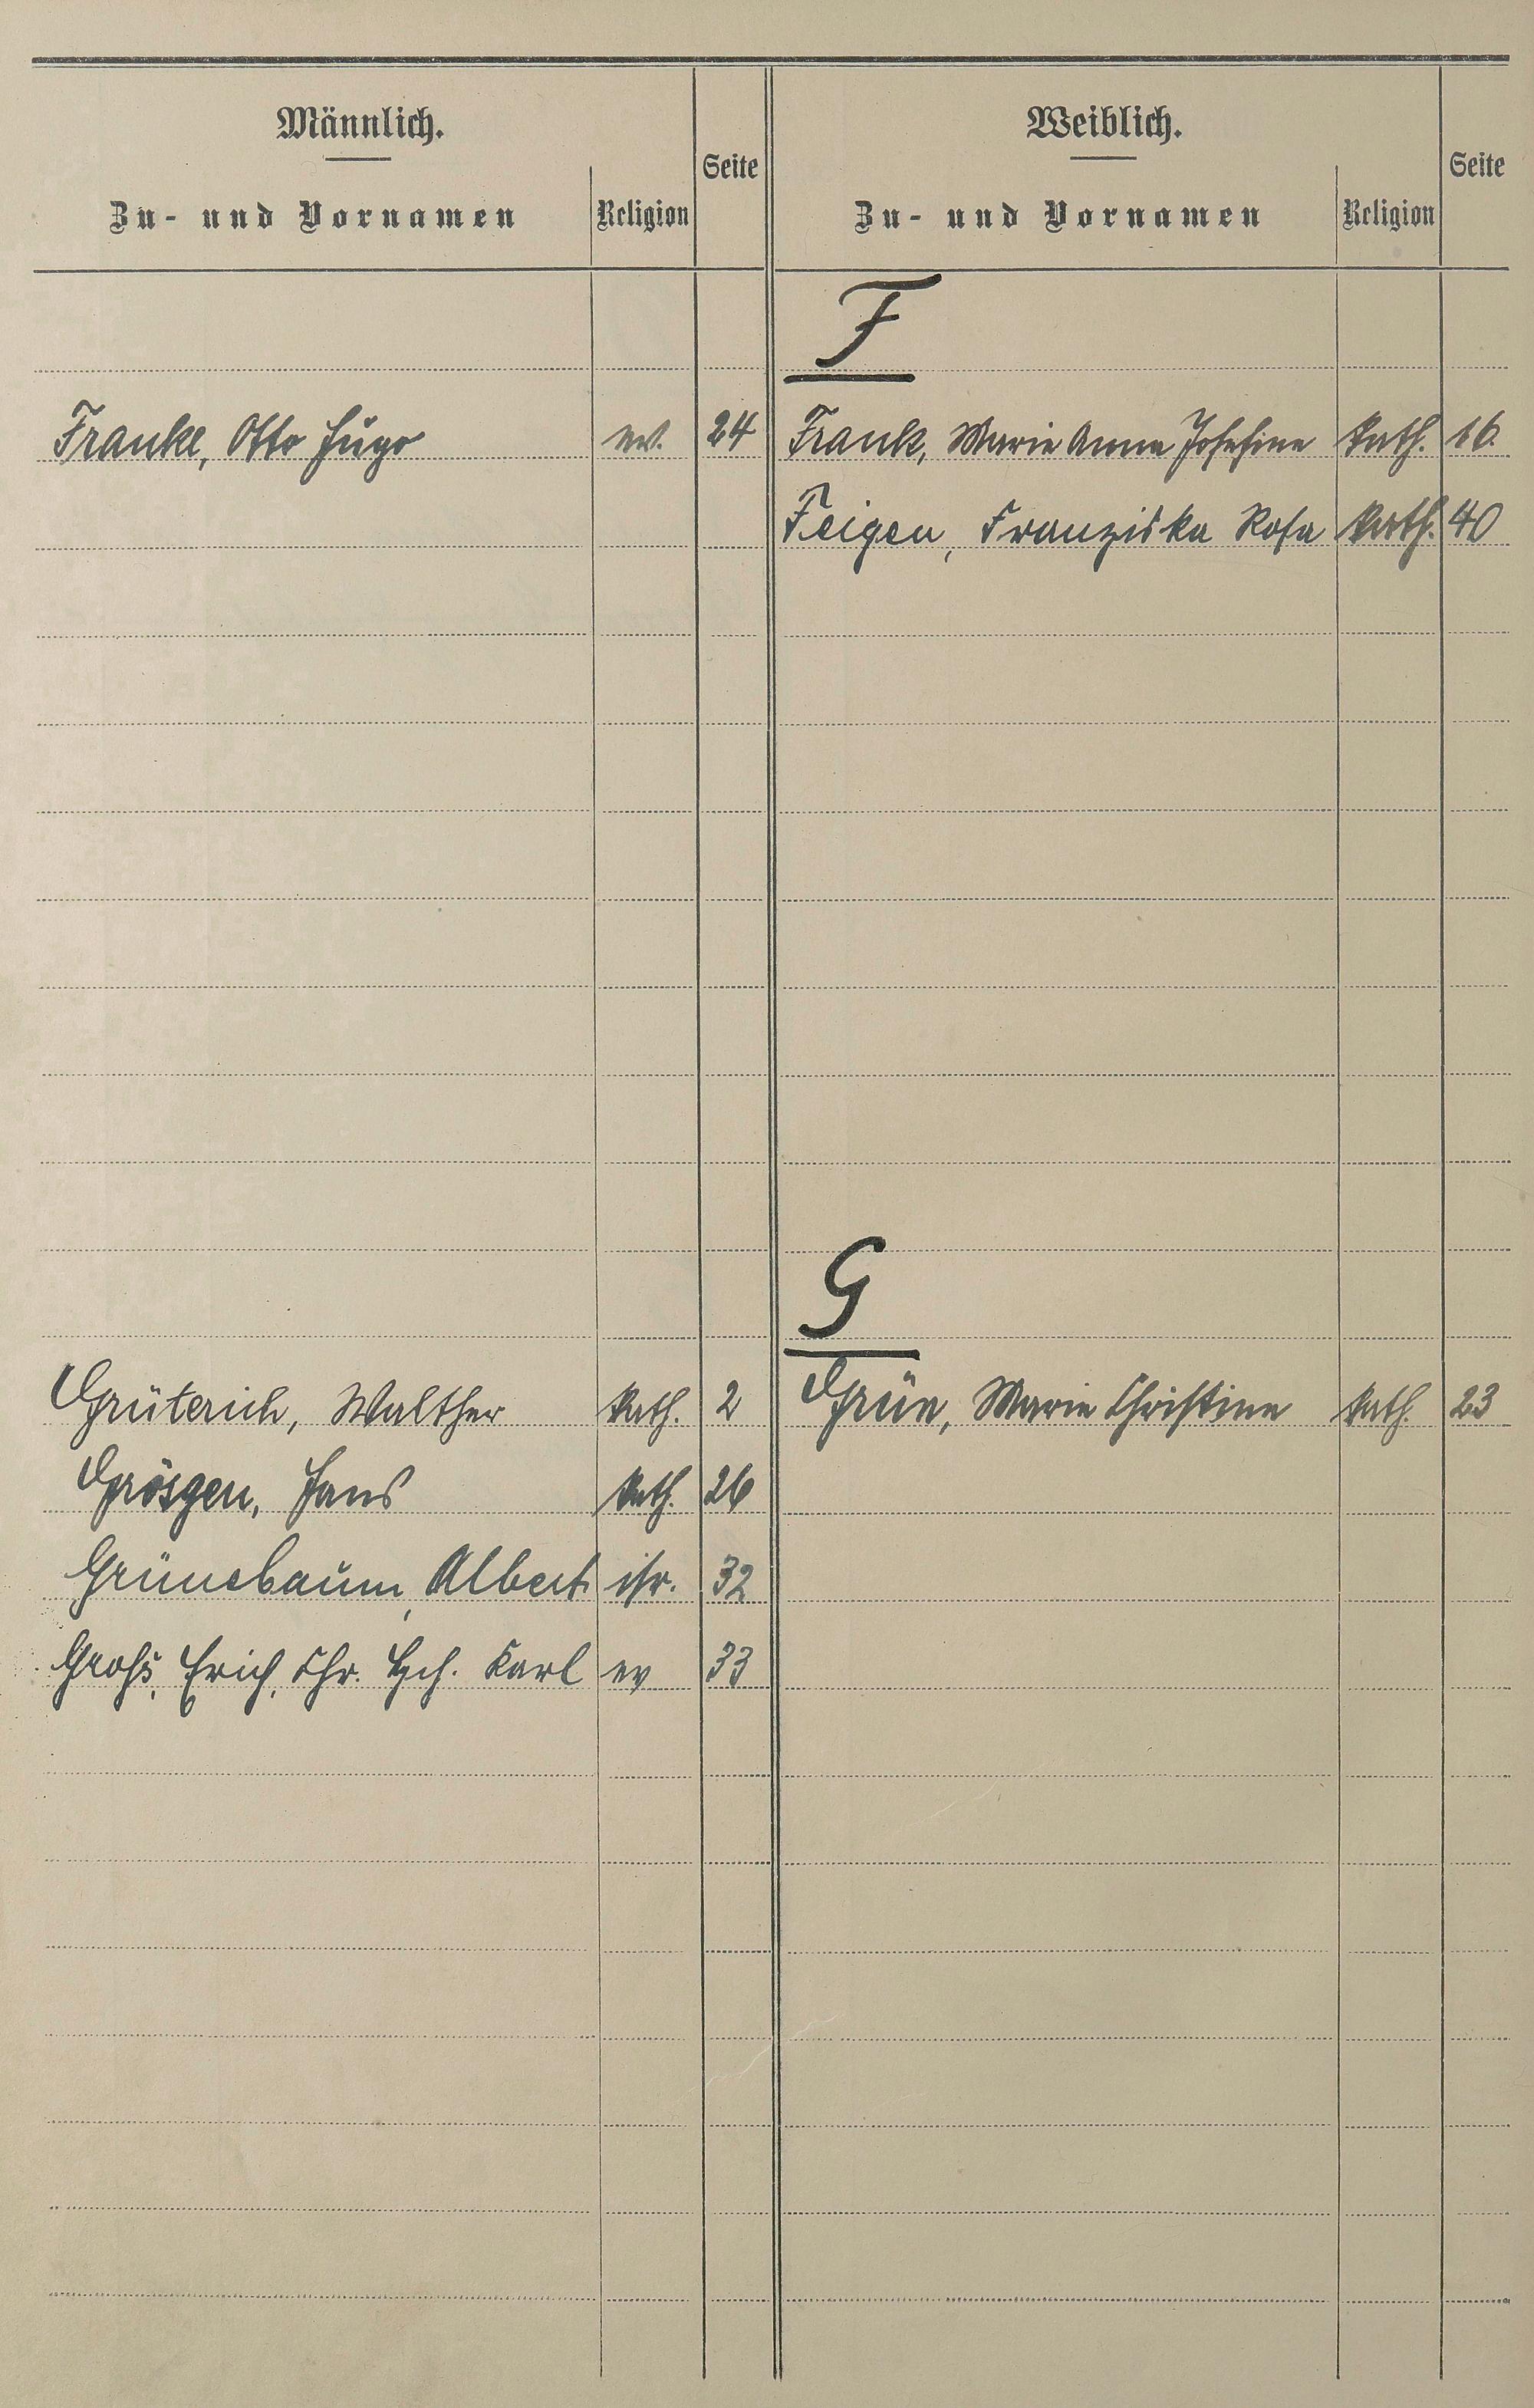 Männlich.
Zu- und Vornamen
Religion
Seite
Weiblich.
Zu- und Vornamen
Religion
Seite
F
Franke, Otto Hugo ev. 24
Frank, Marie Anna Josefine kath. 16
Feigen, Franziska Rosa kath. 40
G
Grüterich, Walther kath. 2
Grün, Marie Christine kath. 23
Grösgen, Hans kath. 26
Grünebaum, Albert isr. 32
Groß, Erich, Chr. Hch. Karl ev 33